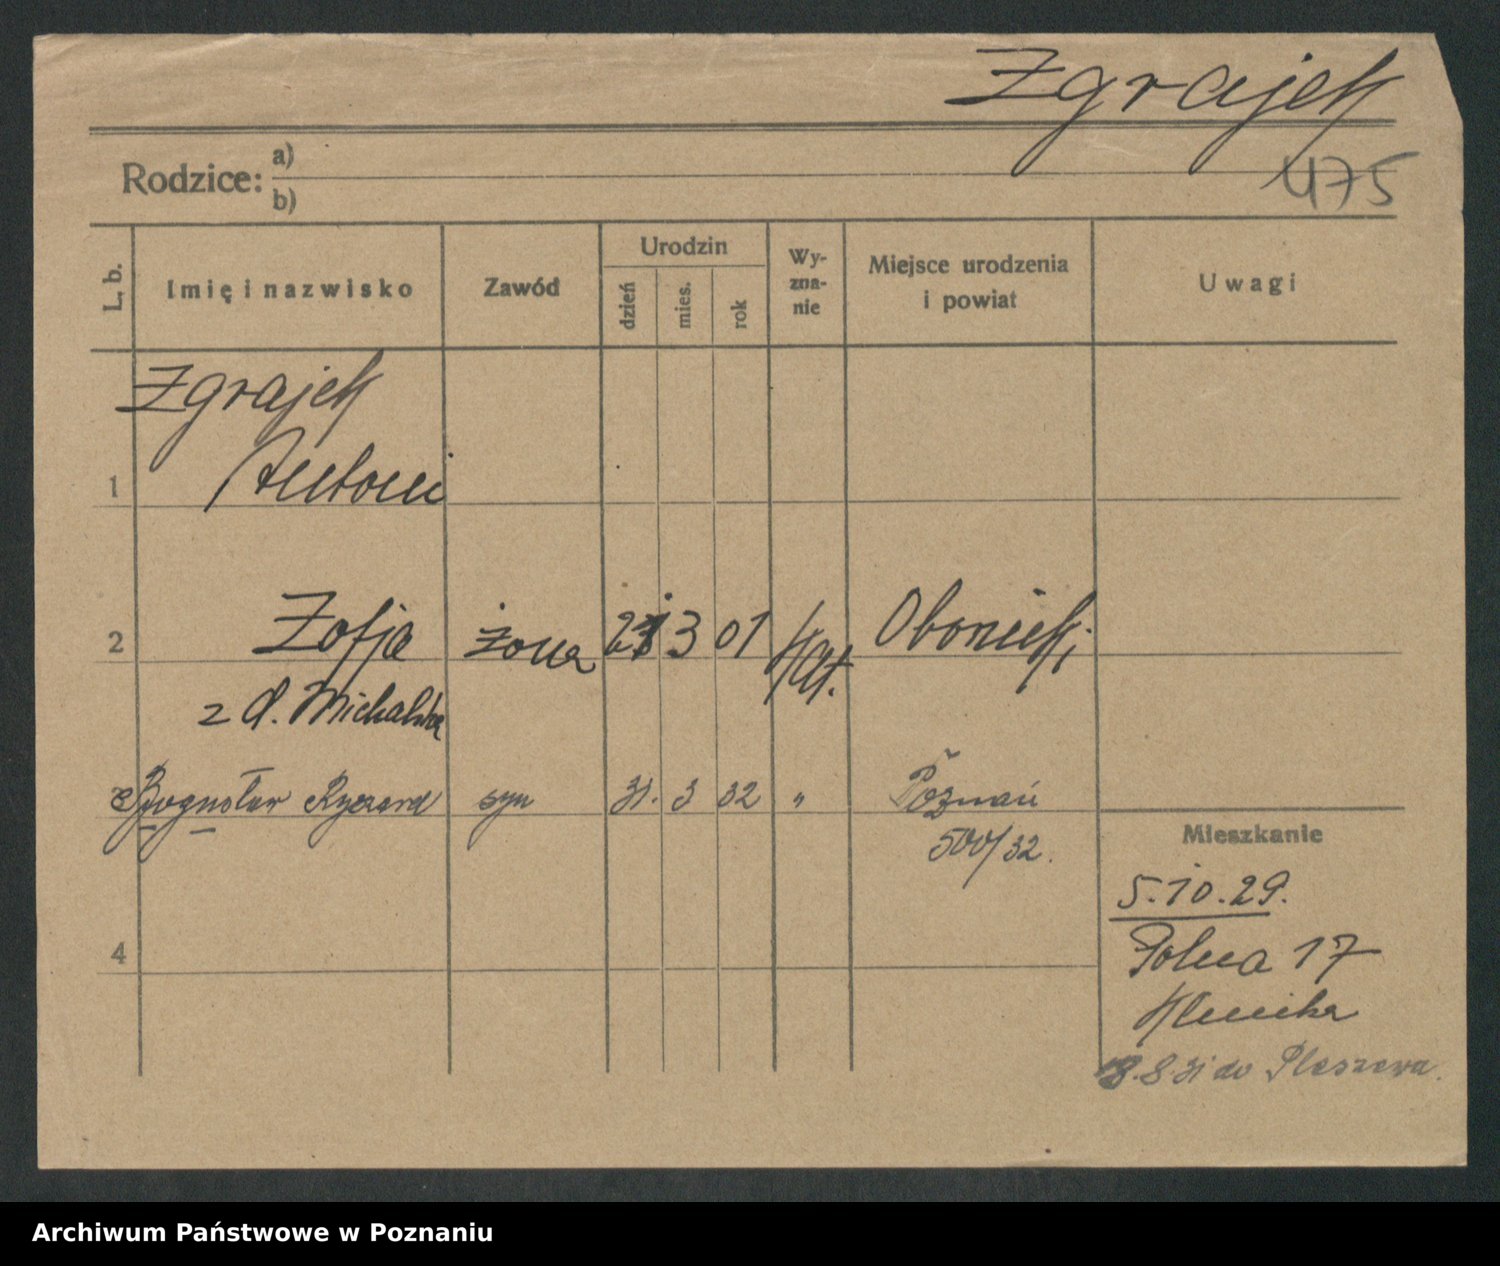 Zgrajek
475
Rodzice: a)
b)
L. b. Imię i nazwisko Zawód Urodzin dzień mies. rok Wyznanie Miejsce urodzenia i powiat Uwagi
Zgrajek
1 Antoni
2 Zofja żona 3 01 kat. Oborniki
z d. Michalska
Bogusław Ryszard syn 31. 3 32 " Poznań
500/32.
Mieszkanie
5.10.29.
4
Polna 17
8.31 do Pleszewa.
Archiwum Państwowe w Poznaniu